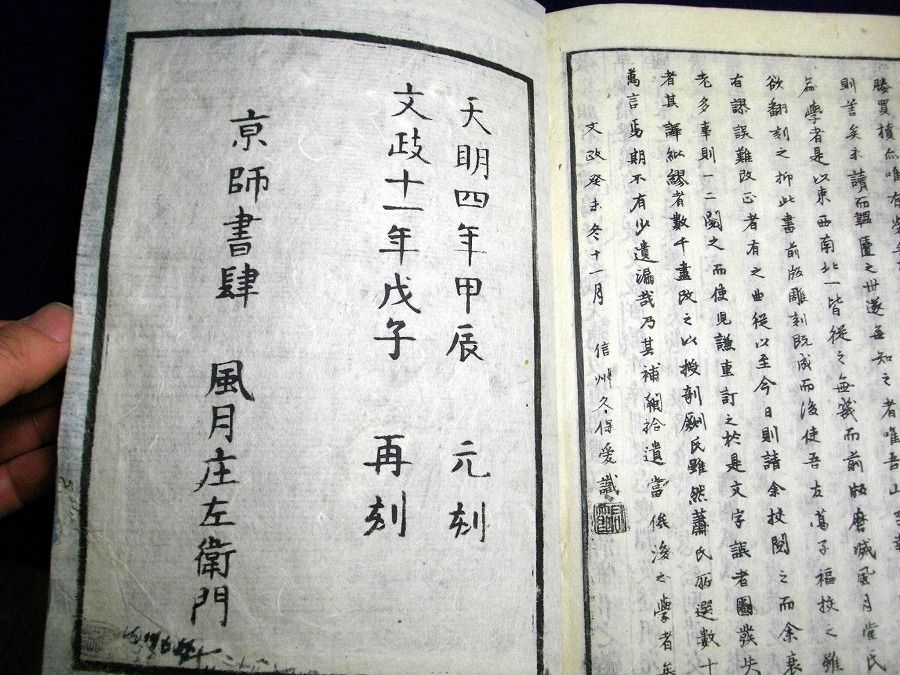 勝買櫝亦唯有
則善矣未讀而韞匵之卋遂無知之者唯吾山
益學者是以東西南北一皆從之無幾而前版磨滅風月堂氏
欲翻刻之抑此書前版雕刻既成而後使吾友萬子福校之雖
有謬誤難改正者有之曲從以至今日則請余校閱之而余衰
老多事則一二閱之而使児謙重訂之於是文字誤者圖發失
者其譯紕繆者數千盡改之以授剞劂氏雖然蕭氏所選數十
萬言焉期不有少遺漏哉乃其補闕拾遺當俟後之學者矣
文政癸未冬十一月 信州冬保愛識
天明四年甲辰 元刻
文政十一年戊子 再刻
京師書肆 風月庄左衛門